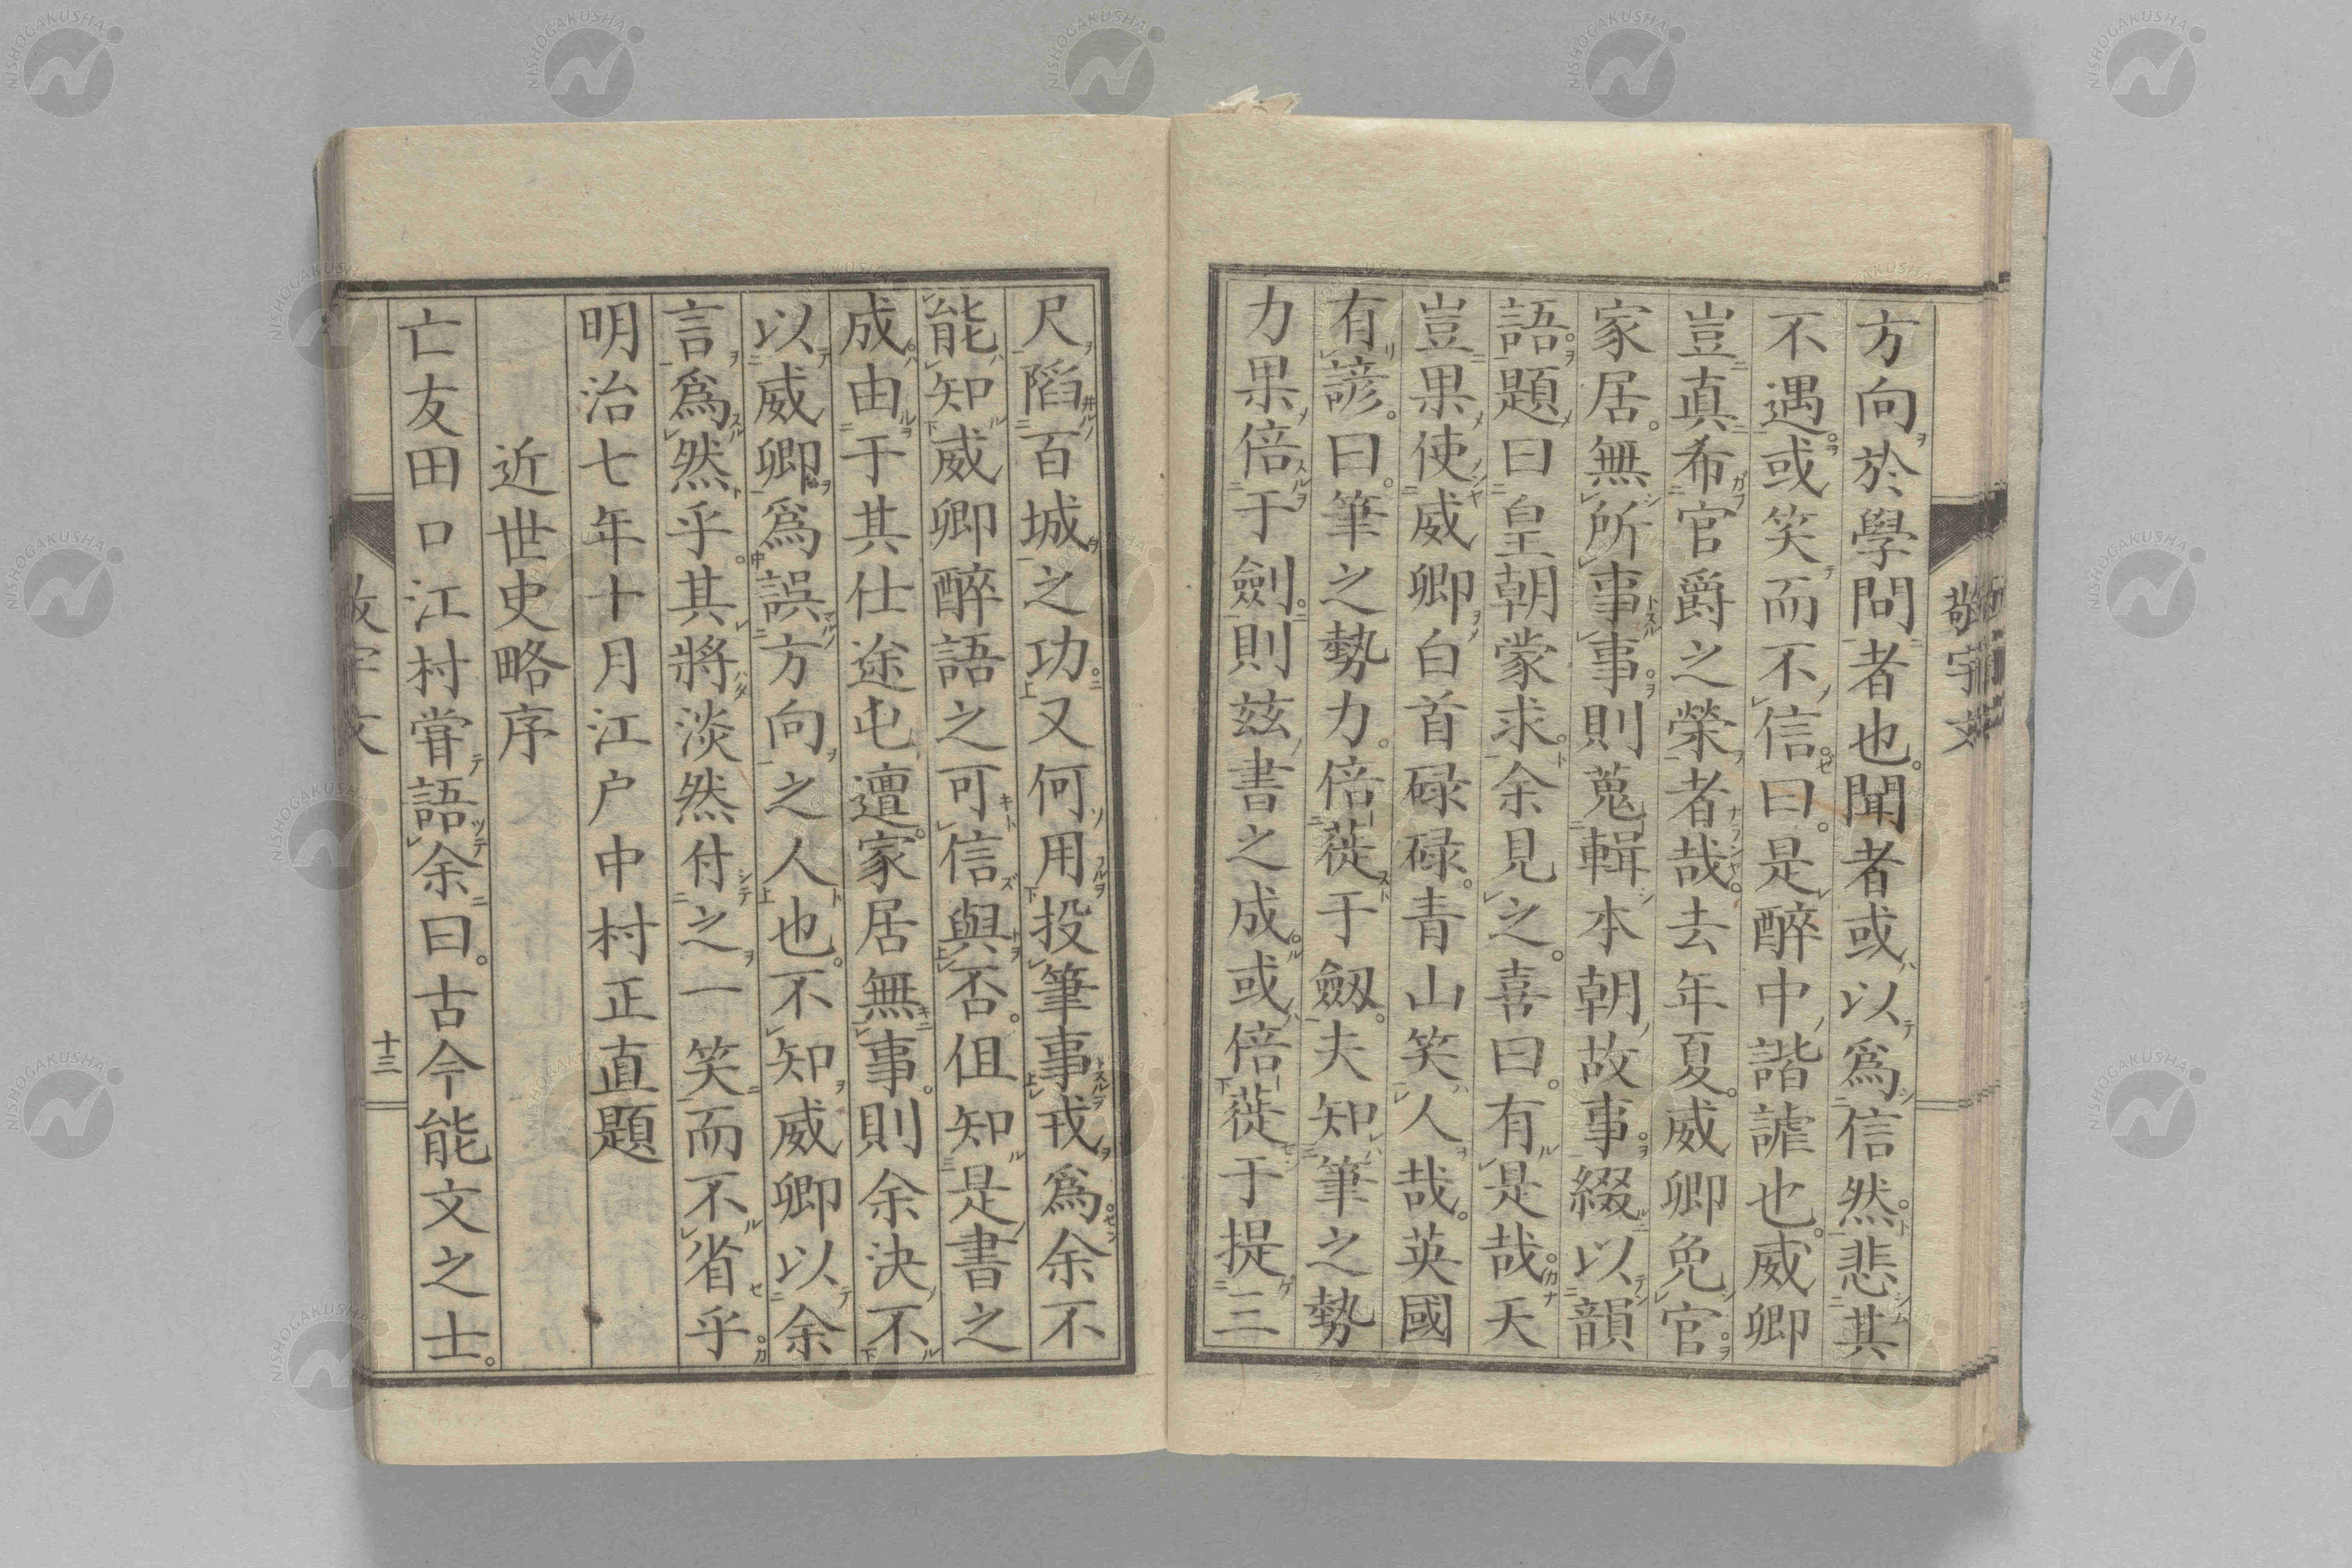 方向於學問者也。聞者或以爲信然。悲其
不遇。或笑而不信。曰。是醉中諧謔也。威卿
豈真希官爵之榮者哉。去年夏。威卿免官。
家居。無所事事。則蒐輯本朝故事。綴以韻
語。題曰皇朝蒙求。余見之。喜曰。有是哉。天
豈果使威卿白首碌碌。青山笑人哉。英國
有諺。曰。筆之勢力。倍蓰于劔。夫知筆之勢
力果倍于劍。則玆書之成。或倍蓰于提三
尺陷百城之功。又何用投筆事戎爲。余不
能知威卿醉語之可信與否。但知是書之
成。由于其仕途屯邅。家居無事。則余決不
以威卿爲誤方向之人也。不知威卿以余
言爲然乎。其將淡然付之一笑而不省乎。
明治七年十月江户中村正直題
近世史略序
亡友田口江村甞語余曰。古今能文之士。
敬宇文
十三
敬宇文
NISHOGAKUSHA